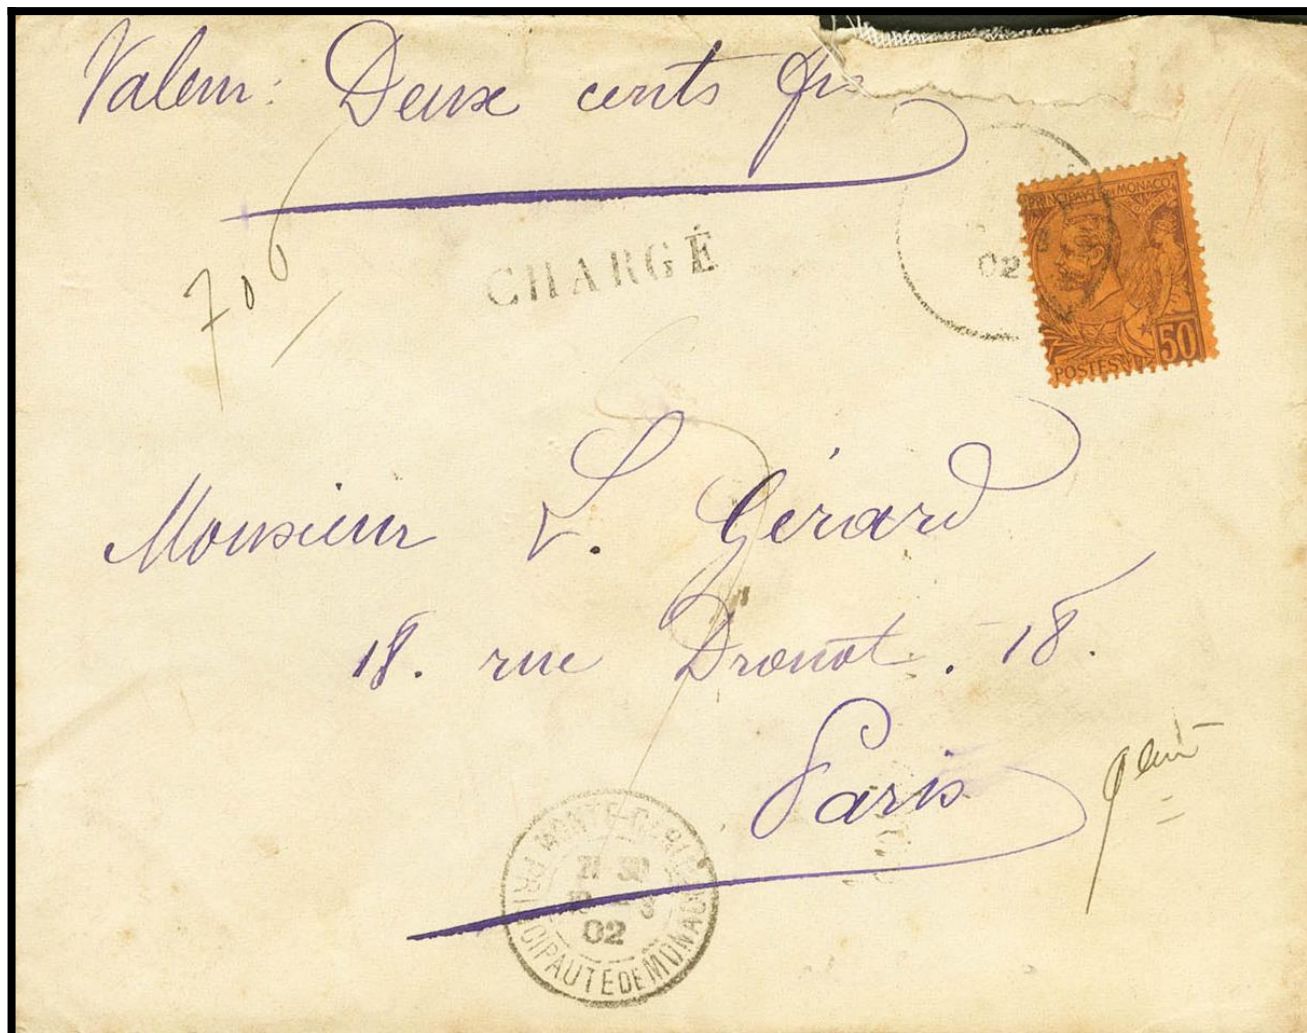 Valeur: Deux cents fr
CHARGÉ
02
PRINCIPAUTÉ DE MONACO
50
POSTES
Monsieur L. Gérard
18. rue Drouot. 18.
Paris
MONTE-CARLO
02
PRINCIPAUTÉ DE MONACO